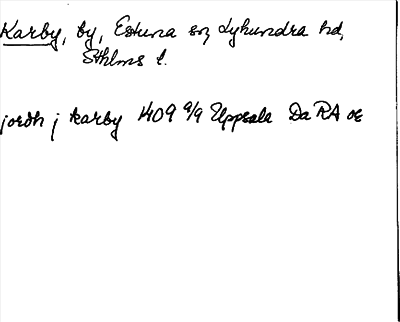 Karby, by, Estuna sn, Lyhundra hd,
Sthlms l.
jordh j karby 1409 9/9 Uppsala Da RA oc